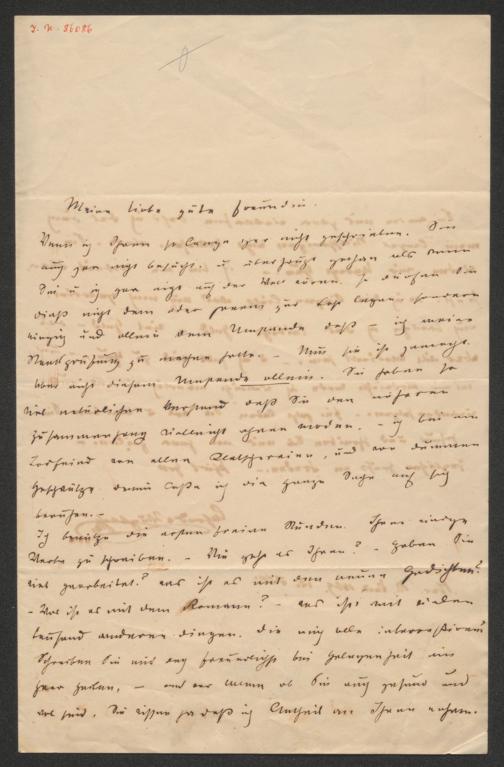 J. N. 86086
Meine liebe gute Freundin.
Wenn ich Ihnen so lange gar nicht geschrieben. Sie
auch gar nicht besucht. u überhaupt gethan als wenn
Sie u ich gar nicht auf der Welt wären. so dürfen Sie
dieß nicht dem oder jenem zur Last legen, sondern
einzig und allein dem Umstande daß – ich meine
Staatsprüfung zu machen hatte. – Nun sie ist gemacht.
Aber nicht diesem Umstande allein. Sie haben so
viel natürlichen Verstand daß Sie den näheren
Zusammenhang vielleicht ahnen werden. – ich bin ein
Todfeind von allen Klatschereien, und von dummen
Geschwätze denn lasse ich die ganze Sache auf sich
beruhen. –
Ich benütze die ersten freien Stunden. Ihnen einige
Worte zu schreiben. – Wie geht es Ihnen? – Haben Sie
viel gearbeitet? was ist es mit den neuen Gedichten?
– Was ist es mit dem Romane? – was ist mit vielen
tausend anderen Dingen. die mich alle interessiren
Schreiben Sie mir doch bei Gelegenheit ein
paar Zeilen, – und vor allem ob Sie auch gesund und
wol sind. Sie wissen ja daß ich Antheil an Ihnen nehme.